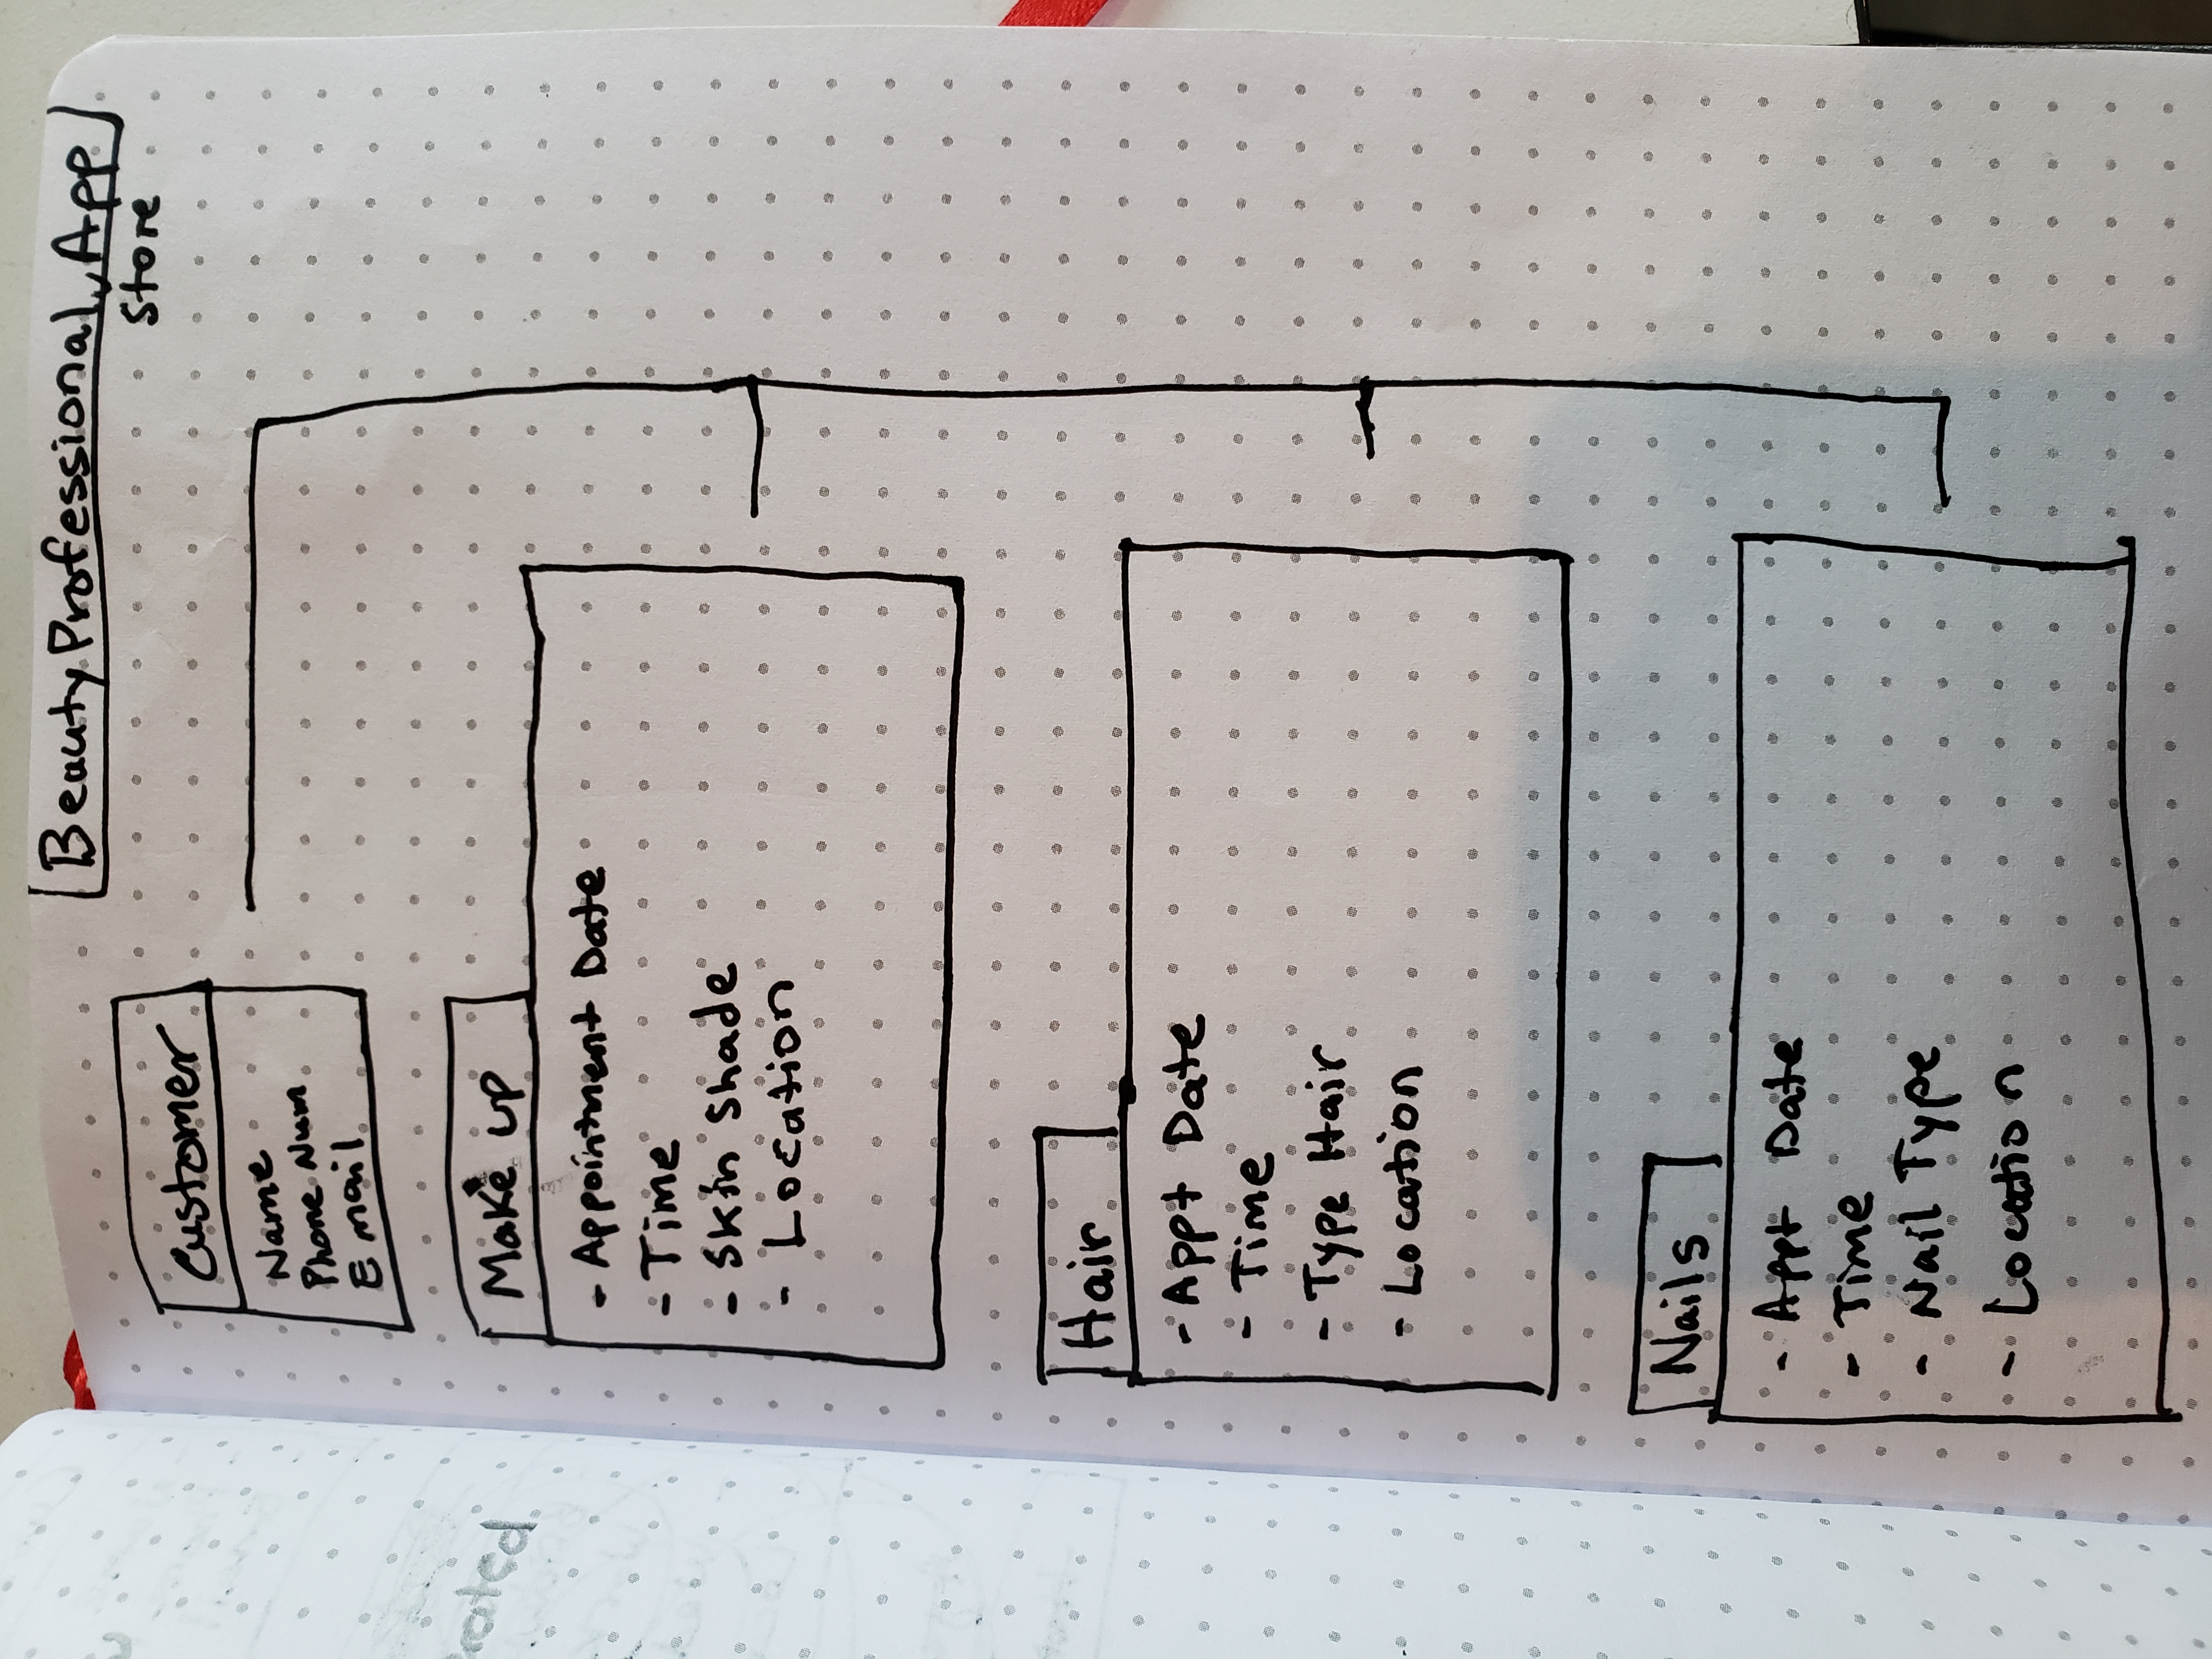 Beauty Professional, App
Store
Customer
Name
Phone Num
Email
Make up
- Appointment Date
- Time
- Skin Shade
- Location
Hair
- Appt Date
- Time
- Type Hair
- Location
Nails
- Appt Date
- Time
- Nail Type
- Location